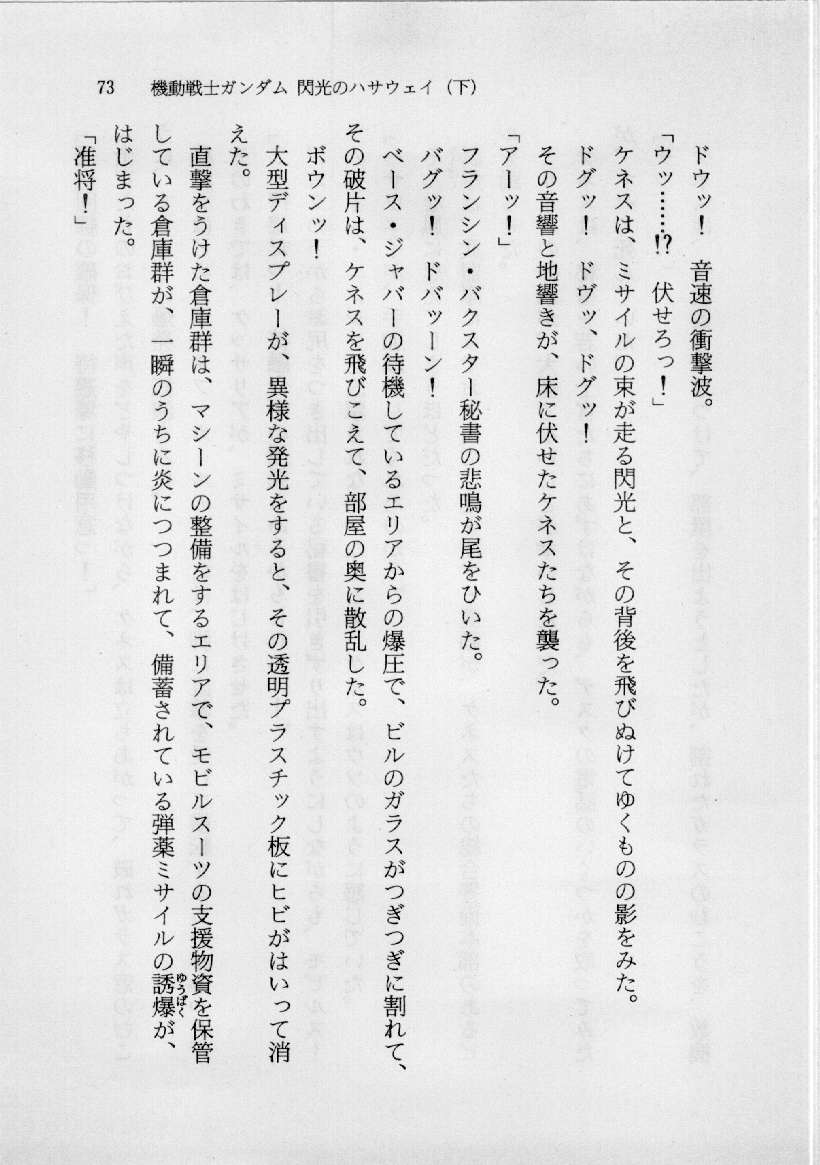 73　機動戦士ガンダム 閃光のハサウェイ（下）
　ドウッ！　音速の衝撃波。
「ウッ……!?　伏せろっ！」
　ケネスは、ミサイルの束が走る閃光と、その背後を飛びぬけてゆくものの影をみた。
　ドグッ！　ドヴッ、ドグッ！
　その音響と地響きが、床に伏せたケネスたちを襲った。
「アーッ！」
　フランシン・バクスター秘書の悲鳴が尾をひいた。
　バグッ！　ドバッーン！
　ベース・ジャバーの待機しているエリアからの爆圧で、ビルのガラスがつぎつぎに割れて、
その破片は、ケネスを飛びこえて、部屋の奥に散乱した。
　ボウンッ！
　大型ディスプレーが、異様な発光をすると、その透明プラスチック板にヒビがはいって消
えた。
　直撃をうけた倉庫群は、マシーンの整備をするエリアで、モビルスーツの支援物資を保管
している倉庫群が、一瞬のうちに炎につつまれて、備蓄されている弾薬ミサイルの誘爆ゆうばくが、
はじまった。
「准将！」